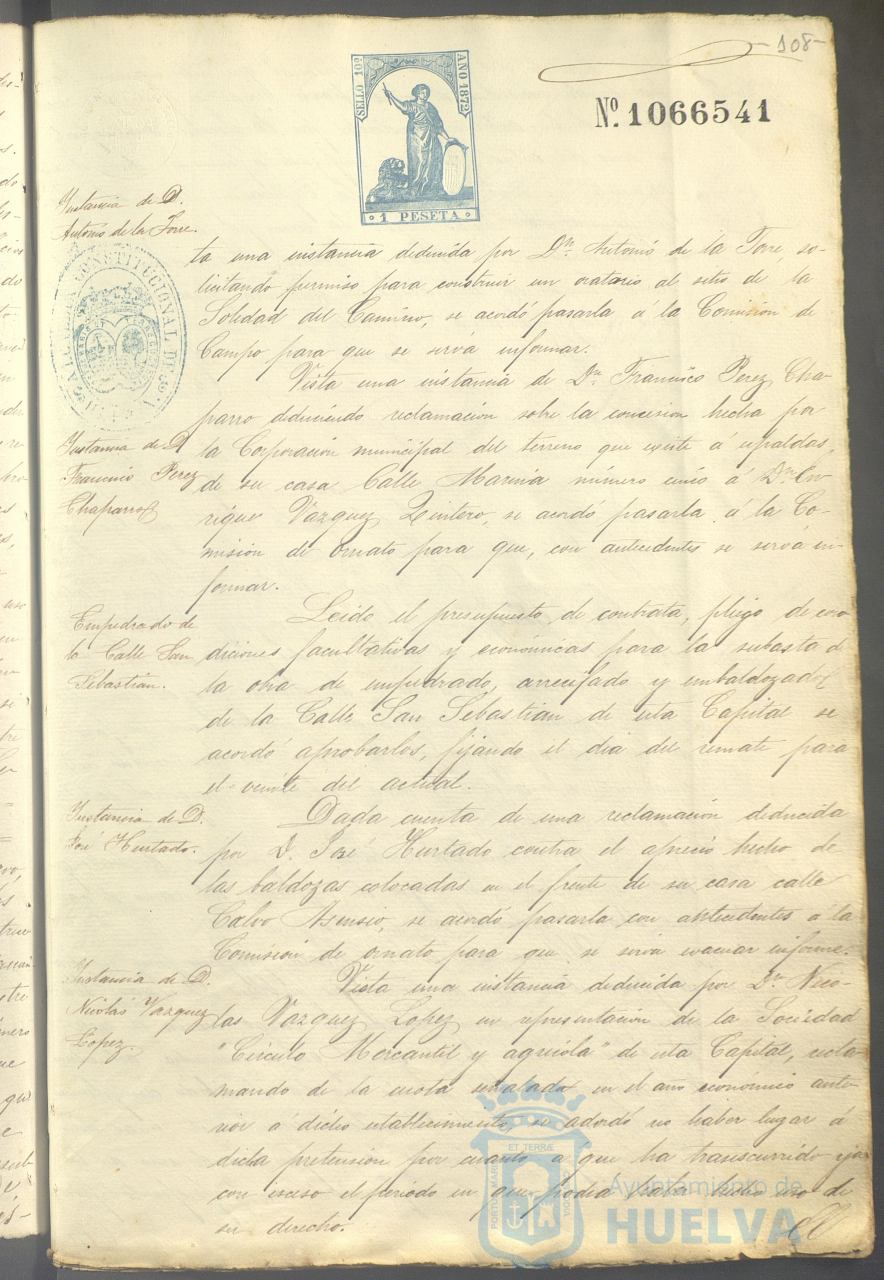 -108-
SELLO 10º AÑO 1872
1 PESETA
Nº 1066541
Instancia de D.
Antonio de la Torre.
ta una instancia deducida por Dn. Antonio de la Torre, so-
licitando permiso para construir un oratorio al sitio de la
Soledad del Camino, se acordó pasarla á la Comision de
Campo para que se sirva informar.
Instancia de D.
Francisco Perez
Chaparro
Vista una instancia de Dn. Francisco Perez Cha-
parro deduciendo reclamación sobre la concesion hecha por
la Corporación municipal del terreno que existe á espaldas
de su casa Calle Marina número cinco á Dn. En-
rique Vázquez Quintero, se acordó pasarla á la Co-
misión de ornato para que, con antecedentes se sirva in-
formar.
Empedrado de
la Calle San
Sebastián.
Leido el presupuesto de contrata, pliego de con
diciones facultativas y económicas para la subasta de
la obra de empedrado, arrecifado y embaldozado
de la Calle San Sebastián de esta Capital se
acordó aprobarlos, fijando el dia del remate para
el veinte del actual.
Instancia de D.
José Hurtado.
Dada cuenta de una reclamación deducida
por D. José Hurtado contra el aprecio hecho de
las baldozas colocadas en el frente de su casa calle
Calvo Asensio, se acordó pasarla con antecedentes á la
Comisión de ornato para que se sirva evacuar informe.
Instancia de D.
Nicolás Vazquez
Lopez.
Vista una instancia deducida por Dn. Nico-
las Vazquez Lopez en representación de la Sociedad
"Circulo Mercantil y agricola" de esta Capital, recla
mando de la cuota señalada en el año económico ante-
rior á dicho establecimiento, se acordó no haber lugar á
dicha pretension por cuanto a que ha transcurrido ya
con esceso el periodo en que podia haber hecho uso de
su derecho.
Ayuntamiento de
HUELVA